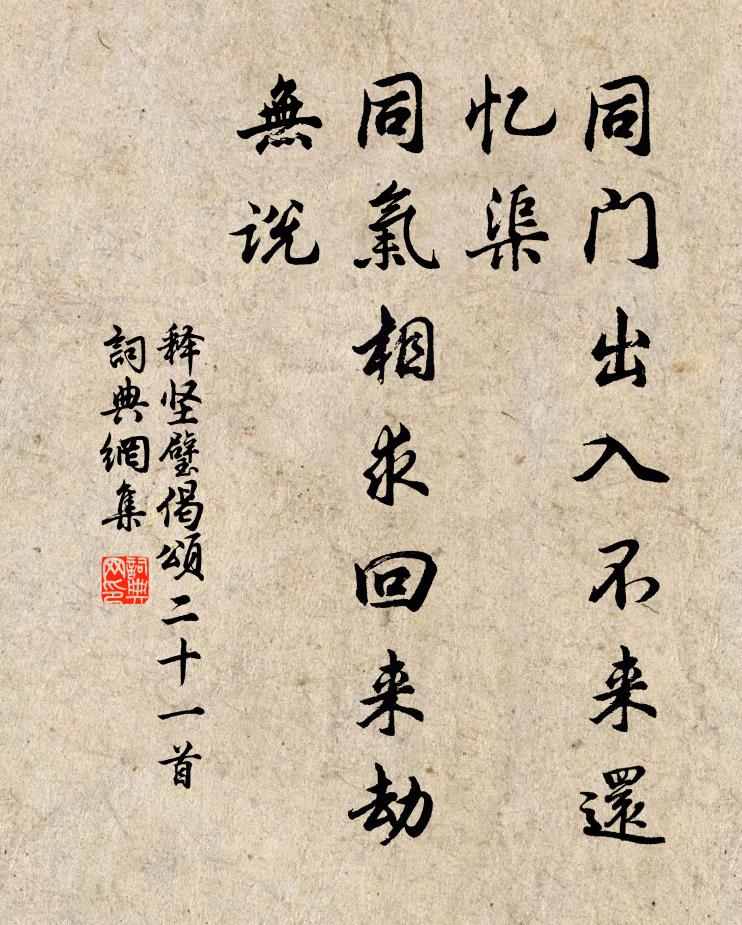 同门出入不来還
忆渠
同氣相求回来劫
無说
释坚璧偈頌二十一首
詞典網集
詞典网印